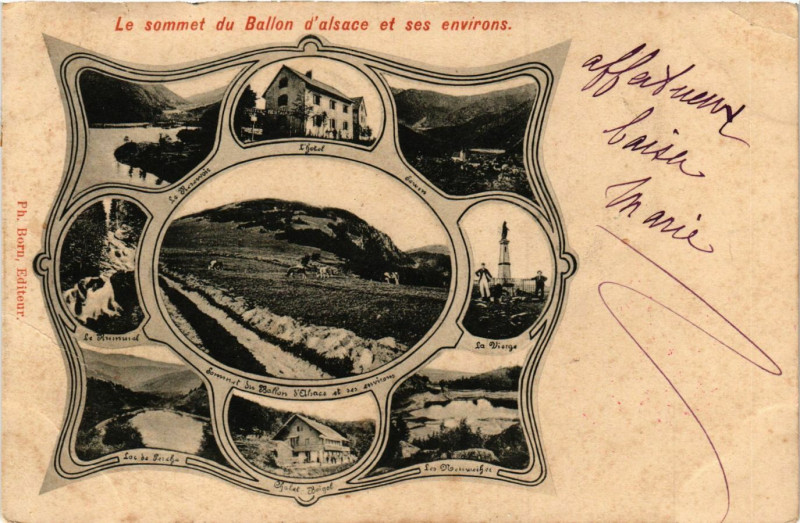 Le sommet du Ballon d'alsace et ses environs.
affectueux
baiser
Marie
Ph. Boru, Editeur.
L'Hotel
Le Reservoir
Sewen
La Vierge
Sommet du Ballon d'Alsace et ses environs
Lac de
Chalet
Les